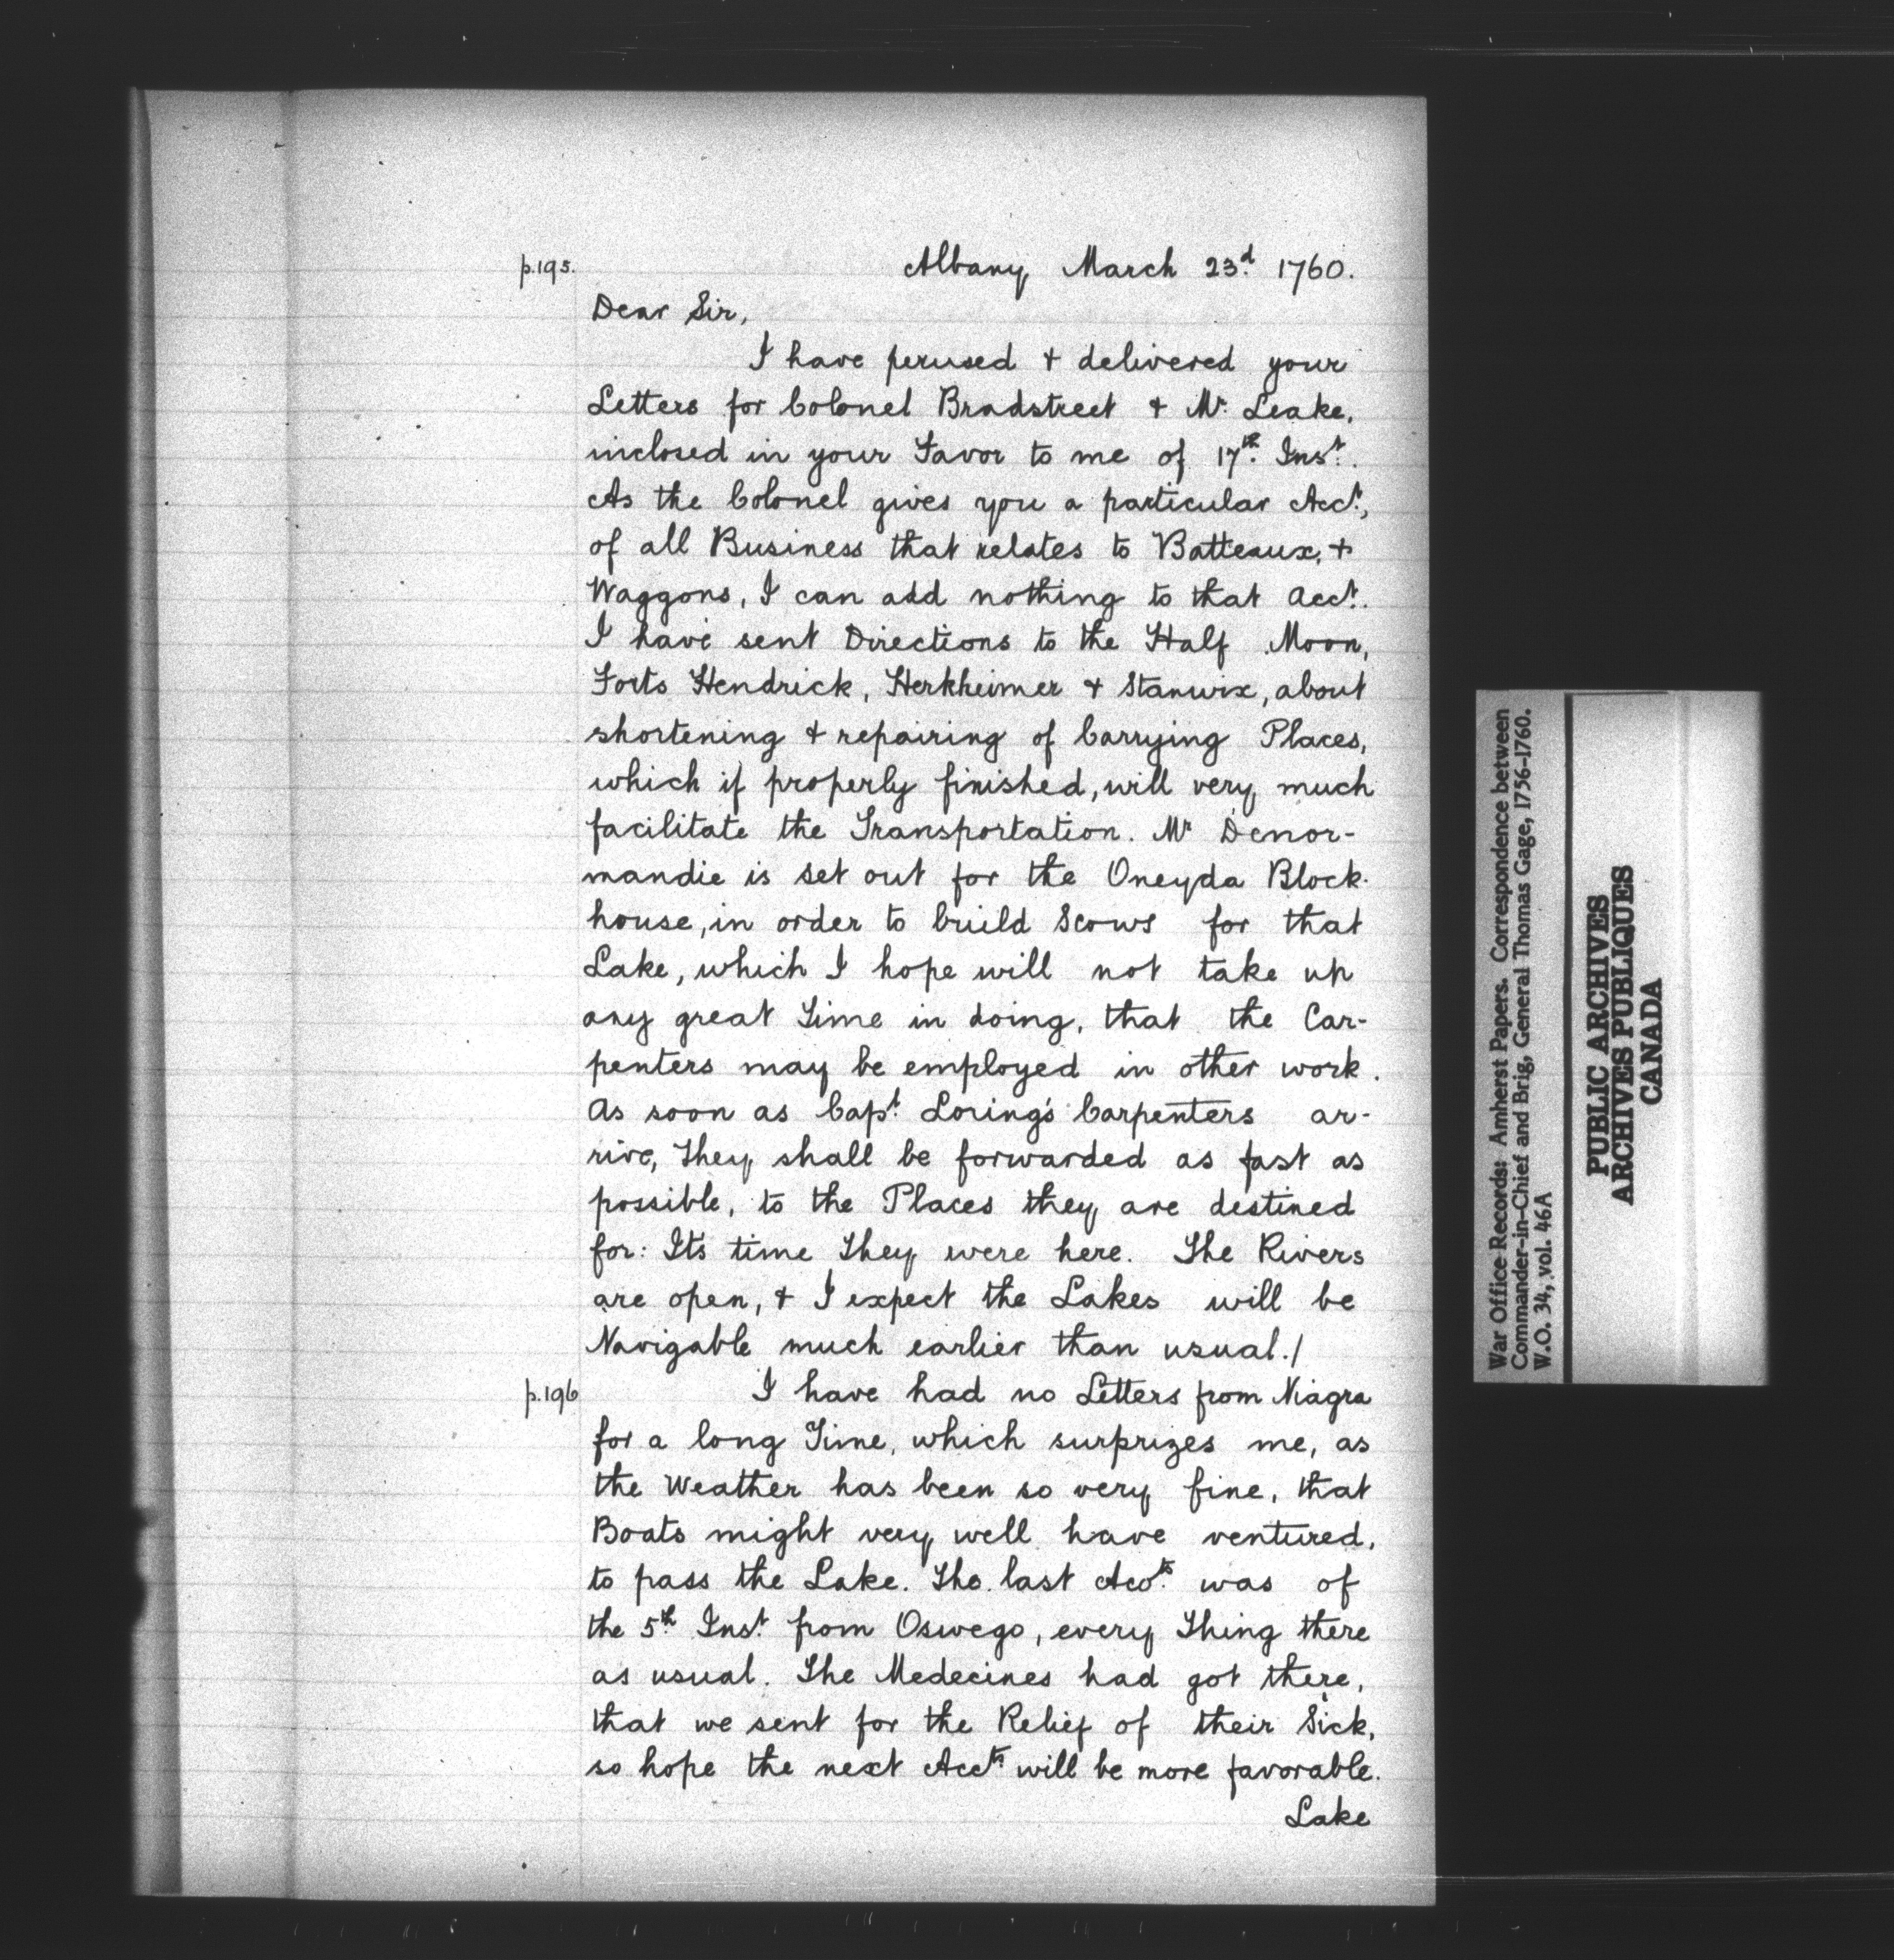 p.195. Albany March 23.d 1760.
Dear Sir,
I have perused & delivered your
Letters for Colonel Bradstreet & Mr. Leake,
inclosed in your Favor to me of 17.th Inst.
As the Colonel gives you a particular Acct.,
of all Business that relates to Batteaux, &
Waggons, I can add nothing to that acct.
I have sent Directions to the Half Moon,
Forts Hendrick, Herkheimer & Stanwix, about
shortening & repairing of Carrying Places,
which if properly finished, will very much
facilitate the Transportation. Mr Denor-
mandie is set out for the Oneyda Block-
house, in order to build Scows for that
Lake, which I hope will not take up
any great Time in doing, that the Car-
penters may be employed in other work.
As soon as Capt. Loring's Carpenters ar-
rive, They shall be forwarded as fast as
possible, to the Places they are destined
for: It's time They were here. The Rivers
are open, & I expect the Lakes will be
Navigable much earlier than usual./
p.196 I have had no Letters from Niagra
for a long Time, which surprizes me, as
the Weather has been so very fine, that
Boats might very well have ventured,
to pass the Lake. The last Accts. was of
the 5.th Inst. from Oswego, every Thing there
as usual. The Medecines had got there,
that we sent for the Relief of their Sick,
so hope the next Accts will be more favorable.
Lake
War Office Records: Amherst Papers. Correspondence between
Commander-in-Chief and Brig, General Thomas Gage, 1756-1760.
W.O. 34, vol. 46A
PUBLIC ARCHIVES
ARCHIVES PUBLIQUES
CANADA